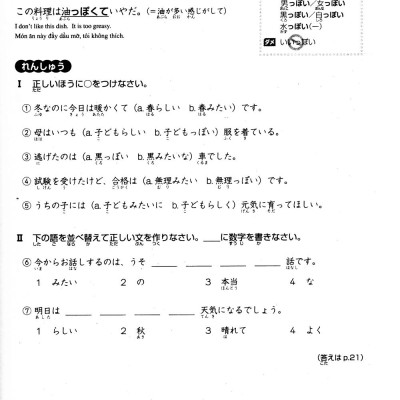 男っぽい／女っぽい
黒っぽい／白っぽい
水っぽい(ー)
ダメ いいっぽい
この料理は油っぽくていやだ。(＝油が多い感じがして)
I don't like this dish. It is too greasy.
Món ăn này đầy dầu mỡ, tôi không thích.
れんしゅう
Ⅰ 正しいほうに○をつけなさい。
① 冬なのに今日は暖かくて（a. 春らしい b. 春みたい）です。
② 母はいつも（a. 子どもらしい b. 子どもっぽい）服を着ている。
③ 逃げたのは（a. 黒っぽい b. 黒みたいな）車でした。
④ 試験を受けたけど、合格は（a. 無理みたい b. 無理っぽい）です。
⑤ うちの子には（a. 子どもみたいに b. 子どもらしく）元気に育ってほしい。
Ⅱ 下の語を並べ替えて正しい文を作りなさい。___に数字を書きなさい。
⑥ 今からお話しするのは、うそ ____ ____ ____ ____ 話です。
1 みたい 2 の 3 本当 4 な
⑦ 明日は ____ ____ ____ ____ 天気になるでしょう。
1 らしい 2 秋 3 晴れて 4 よく
(答えは p.21)